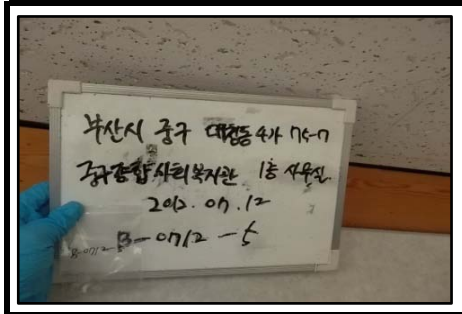 부산시 중구 대청동 4가 75-7
중구종합사회복지관 1층 사무실.
2012. 07. 12
B-0712-5
B-0712